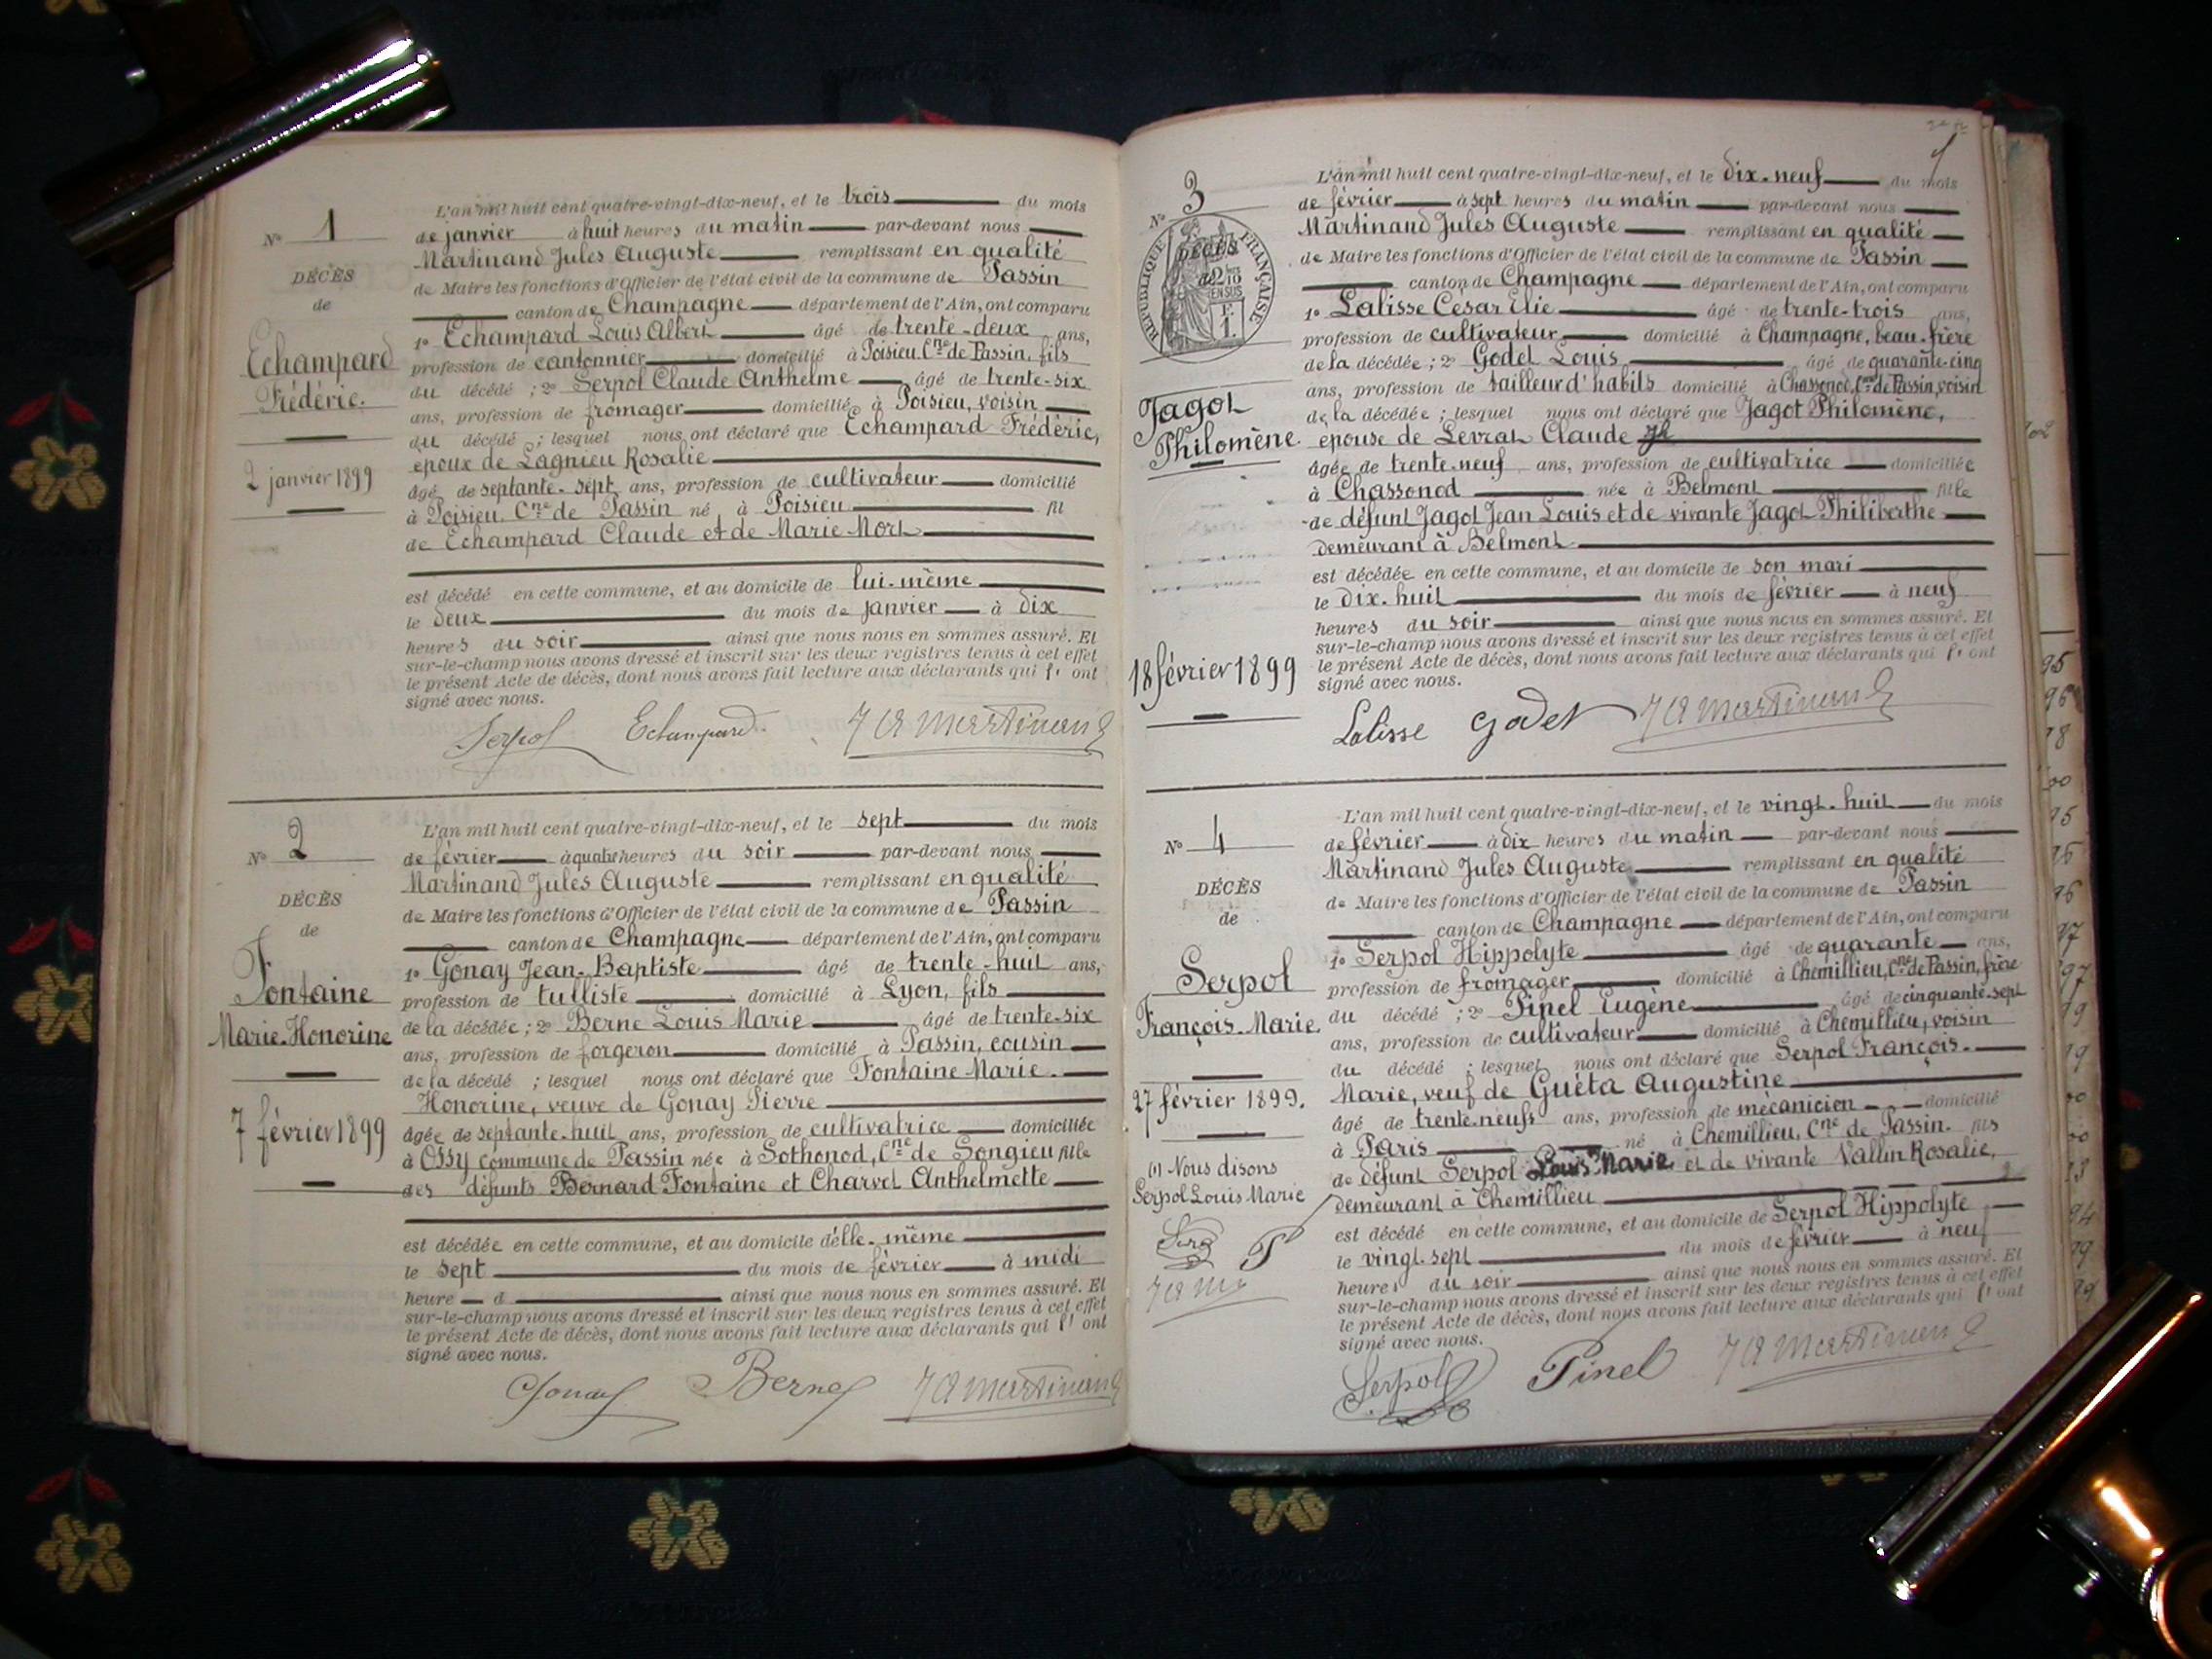 N° 1
DÉCÈS
de
Echampard
Frédéric.
2 janvier 1899
L'an mil huit cent quatre-vingt-dix-neuf, et le trois du mois
de janvier à huit heures du matin par-devant nous
Martinand Jules Auguste remplissant en qualité
de Maire les fonctions d'Officier de l'état civil de la commune de Passin
canton de Champagne département de l'Ain, ont comparu
1° Echampard Louis Albert âgé de trente-deux ans,
profession de cantonnier domicilié à Poisieu, Cne de Passin, fils
du décédé ; 2° Serpol Claude Anthelme âgé de trente-six
ans, profession de fromager domicilié à Poisieu, voisin
du décédé ; lesquel nous ont déclaré que Echampard Frédéric,
époux de Lagnieu Rosalie
âgé de septante-sept ans, profession de cultivateur domicilié
à Poisieu, Cne de Passin né à Poisieu fil
de Echampard Claude et de Marie Mort
est décédé en cette commune, et au domicile de lui-même
le deux du mois de janvier à dix
heures du soir ainsi que nous nous en sommes assuré. Et
sur-le-champ nous avons dressé et inscrit sur les deux registres tenus à cet effet
le présent Acte de décès, dont nous avons fait lecture aux déclarants qui l' ont
signé avec nous.
Serpol Echampard JA Martinand
N° 2
DÉCÈS
de
Fontaine
Marie-Honorine
7 février 1899
L'an mil huit cent quatre-vingt-dix-neuf, et le sept du mois
de février à quatre heures du soir par-devant nous
Martinand Jules Auguste remplissant en qualité
de Maire les fonctions d'Officier de l'état civil de la commune de Passin
canton de Champagne département de l'Ain, ont comparu
1° Gonay Jean-Baptiste âgé de trente-huit ans,
profession de tulliste domicilié à Lyon, fils
de la décédée ; 2° Berne Louis Marie âgé de trente-six
ans, profession de forgeron domicilié à Passin, cousin
de la décédé ; lesquel nous ont déclaré que Fontaine Marie-
Honorine, veuve de Gonay Pierre
âgée de septante-huit ans, profession de cultivatrice domiciliée
à Ossy commune de Passin née à Sothonod, Cne de Songieu fille
des défunts Bernard Fontaine et Charvet Anthelmette
est décédée en cette commune, et au domicile d'elle-même
le sept du mois de février à midi
heure d ainsi que nous nous en sommes assuré. Et
sur-le-champ nous avons dressé et inscrit sur les deux registres tenus à cet effet
le présent Acte de décès, dont nous avons fait lecture aux déclarants qui l' ont
signé avec nous.
Gonay Berne JA Martinand
1
N° 3
RÉPUBLIQUE FRANÇAISE
2/10
EN SUS
Jagot
Philomène
18 février 1899
L'an mil huit cent quatre-vingt-dix-neuf, et le dix-neuf du mois
de février à sept heures du matin par-devant nous
Martinand Jules Auguste remplissant en qualité
de Maire les fonctions d'Officier de l'état civil de la commune de Passin
canton de Champagne département de l'Ain, ont comparu
1° Lalisse Cesar Elie âgé de trente-trois ans,
profession de cultivateur domicilié à Champagne, beau-frère
de la décédée ; 2° Godet Louis âgé de quarante-cinq
ans, profession de tailleur d'habits domicilié à Chassonod, Cne de Passin, voisin
de la décédée ; lesquel nous ont déclaré que Jagot Philomène,
épouse de Levrat Claude
âgée de trente-neuf ans, profession de cultivatrice domiciliée
à Chassonod née à Belmont fille
de défunt Jagot Jean Louis et de vivante Jagot Philiberthe
demeurant à Belmont
est décédée en cette commune, et au domicile de son mari
le dix-huit du mois de février à neuf
heures du soir ainsi que nous nous en sommes assuré. Et
sur-le-champ nous avons dressé et inscrit sur les deux registres tenus à cet effet
le présent Acte de décès, dont nous avons fait lecture aux déclarants qui l' ont
signé avec nous.
Lalisse Godet JA Martinand
N° 4
DÉCÈS
de
Serpol
François-Marie.
27 février 1899.
(1) Nous disons
Serpol Louis Marie
L'an mil huit cent quatre-vingt-dix-neuf, et le vingt-huit du mois
de février à dix heures du matin par-devant nous
Martinand Jules Auguste remplissant en qualité
de Maire les fonctions d'Officier de l'état civil de la commune de Passin
canton de Champagne département de l'Ain, ont comparu
1° Serpol Hippolyte âgé de quarante ans,
profession de fromager domicilié à Chemillieu, Cne de Passin, frère
du décédé ; 2° Pinel Eugène âgé de cinquante-sept
ans, profession de cultivateur domicilié à Chemillieu, voisin
du décédé ; lesquel nous ont déclaré que Serpol François-
Marie, veuf de Guéta Augustine
âgé de trente-neufs ans, profession de mécanicien domicilié
à Paris né à Chemillieu, Cne de Passin. fils
de défunt Serpol Louis Marie et de vivante Vallin Rosalie,
demeurant à Chemillieu
est décédé en cette commune, et au domicile de Serpol Hippolyte
le vingt-sept du mois de février à neuf
heures du soir ainsi que nous nous en sommes assuré. Et
sur-le-champ nous avons dressé et inscrit sur les deux registres tenus à cet effet
le présent Acte de décès, dont nous avons fait lecture aux déclarants qui l' ont
signé avec nous.
Serpol Pinel JA Martinand